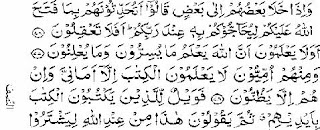 وَإِذَا خَلَا بَعْضُهُمْ إِلَىٰ بَعْضٍ قَالُوٓا۟ أَتُحَدِّثُونَهُم بِمَا فَتَحَ
ٱللَّهُ عَلَيْكُمْ لِيُحَآجُّوكُم بِهِۦ عِندَ رَبِّكُمْ أَفَلَا تَعْقِلُونَ
أَوَلَا يَعْلَمُونَ أَنَّ ٱللَّهَ يَعْلَمُ مَا يُسِرُّونَ وَمَا يُعْلِنُونَ
وَمِنْهُمْ أُمِّيُّونَ لَا يَعْلَمُونَ ٱلْكِتَٰبَ إِلَّآ أَمَانِىَّ وَإِنْ
هُمْ إِلَّا يَظُنُّونَ فَوَيْلٌ لِّلَّذِينَ يَكْتُبُونَ ٱلْكِتَٰبَ
بِأَيْدِيهِمْ ثُمَّ يَقُولُونَ هَٰذَا مِنْ عِندِ ٱللَّهِ لِيَشْتَرُوا۟